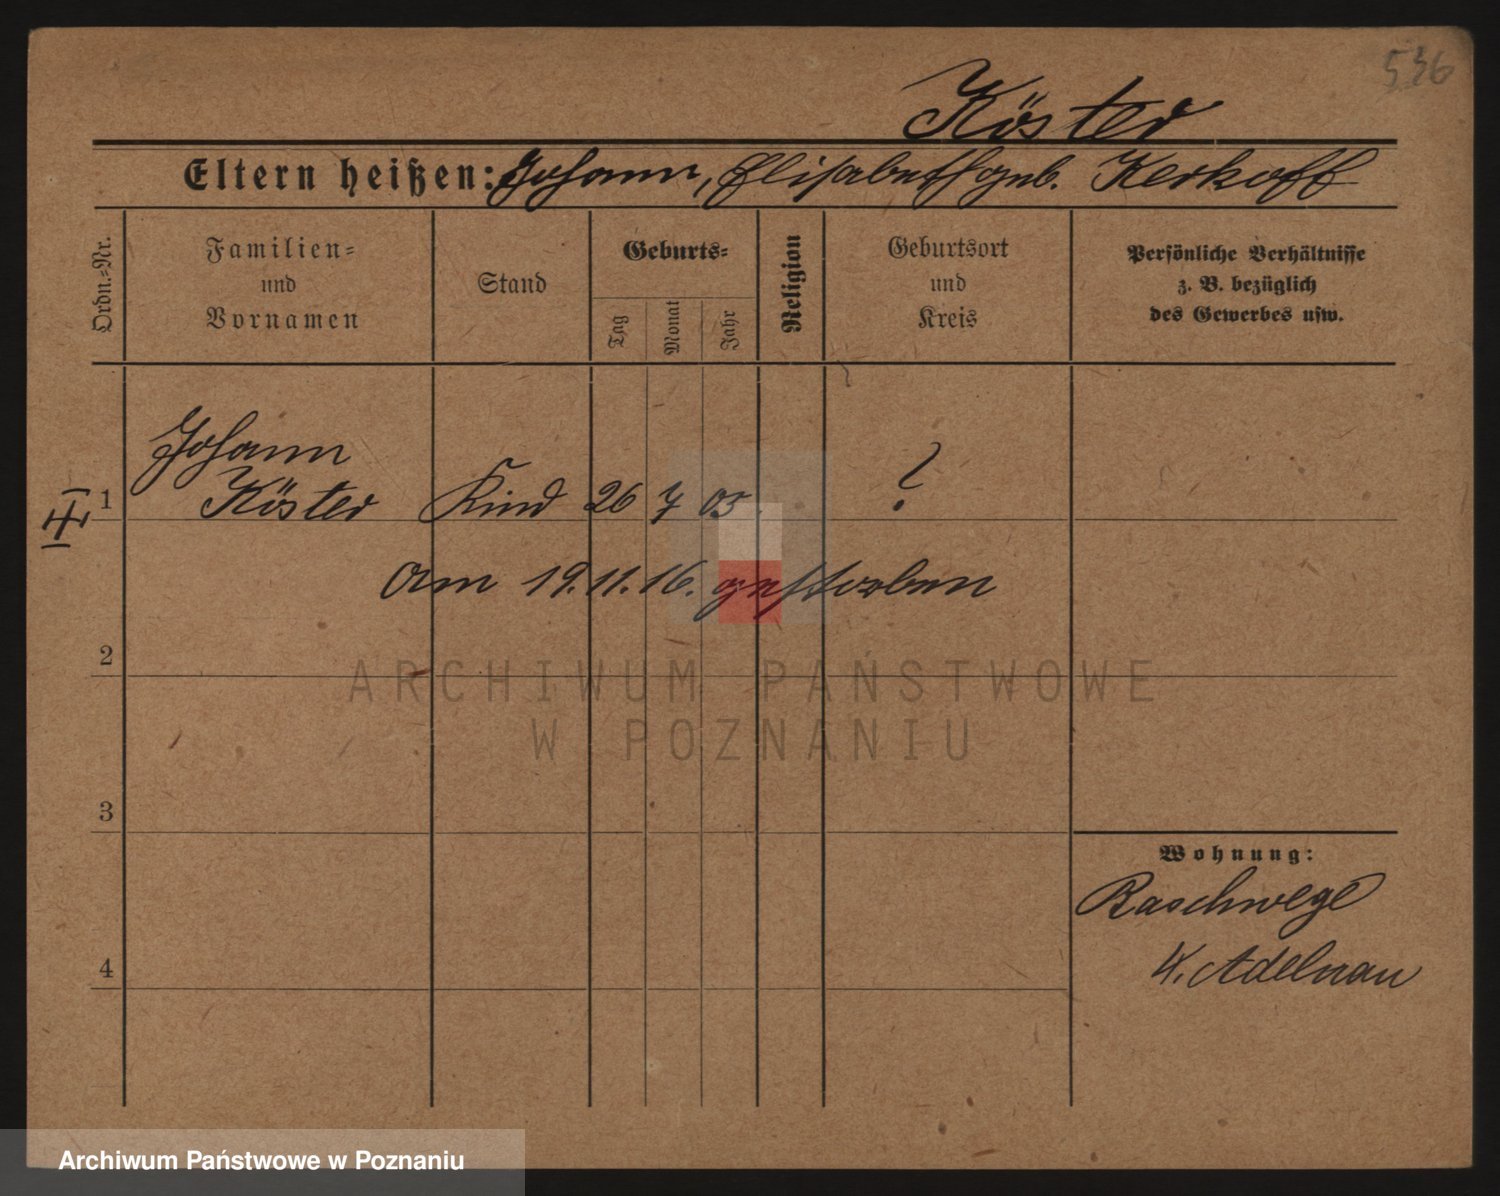 536
Köster
Eltern heißen: Johann, Elisabeth geb. Kerkoff
Ordn.-Nr.
Familien-
und
Vornamen
Stand
Geburts-
Tag
Monat
Jahr
Religion
Geburtsort
und
Kreis
Persönliche Verhältnisse
z. B. bezüglich
des Gewerbes usw.
Johann
1 Köster Kind 26 7 05. ?
am 19.11.16. gestorben
2
ARCHIWUM PAŃSTWOWE
W POZNANIU
3
Wohnung:
Raschwege
4 K. Adelnau
Archiwum Państwowe w Poznaniu